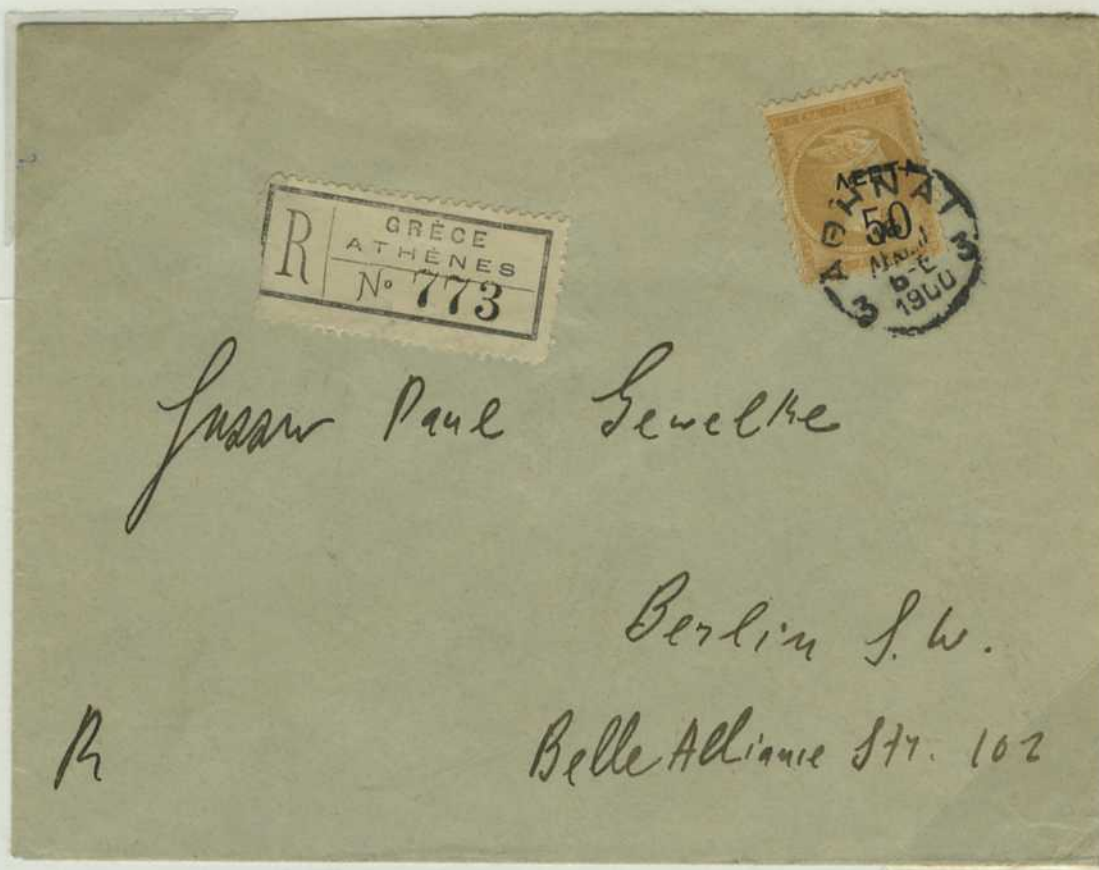 R
GRÈCE
ATHÈNES
Nº 773
ΛΕΠΤΑ
50
ΑΘΗΝΑΙ
3 3
1900
Paul Gewelke
Berlin S. W.
Belle Alliance Str. 102
R